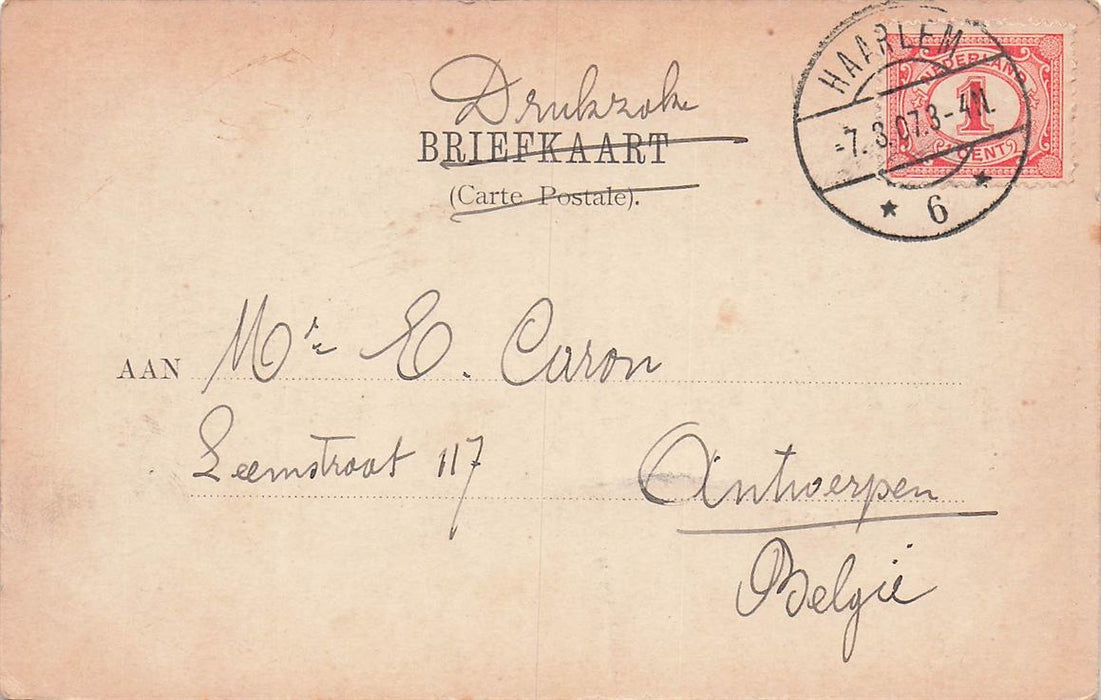 Drukzake
BRIEFKAART
(Carte Postale).
HAARLEM
-7. 3.07.3-4N.
* 6 *
NEDERLAND
1
CENT
AAN Mr E. Caron
Leemstraat 117
Antwerpen
België